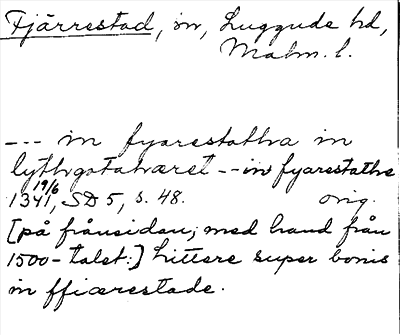 Fjärrestad, sn, Luggude hd,
Malm. l.
--- in fyarestatha in
lythgotahæret -- in fyarestathe
1341 19/6, SD 5, s. 48. orig.
[på frånsidan; med hand från
1500-talet:] Littere super bonis
in ffiærestade.